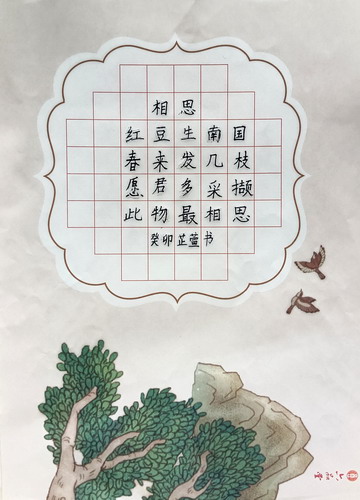 相思
红豆生南国
春来发几枝
愿君多采撷
此物最相思
癸卯芷萱书